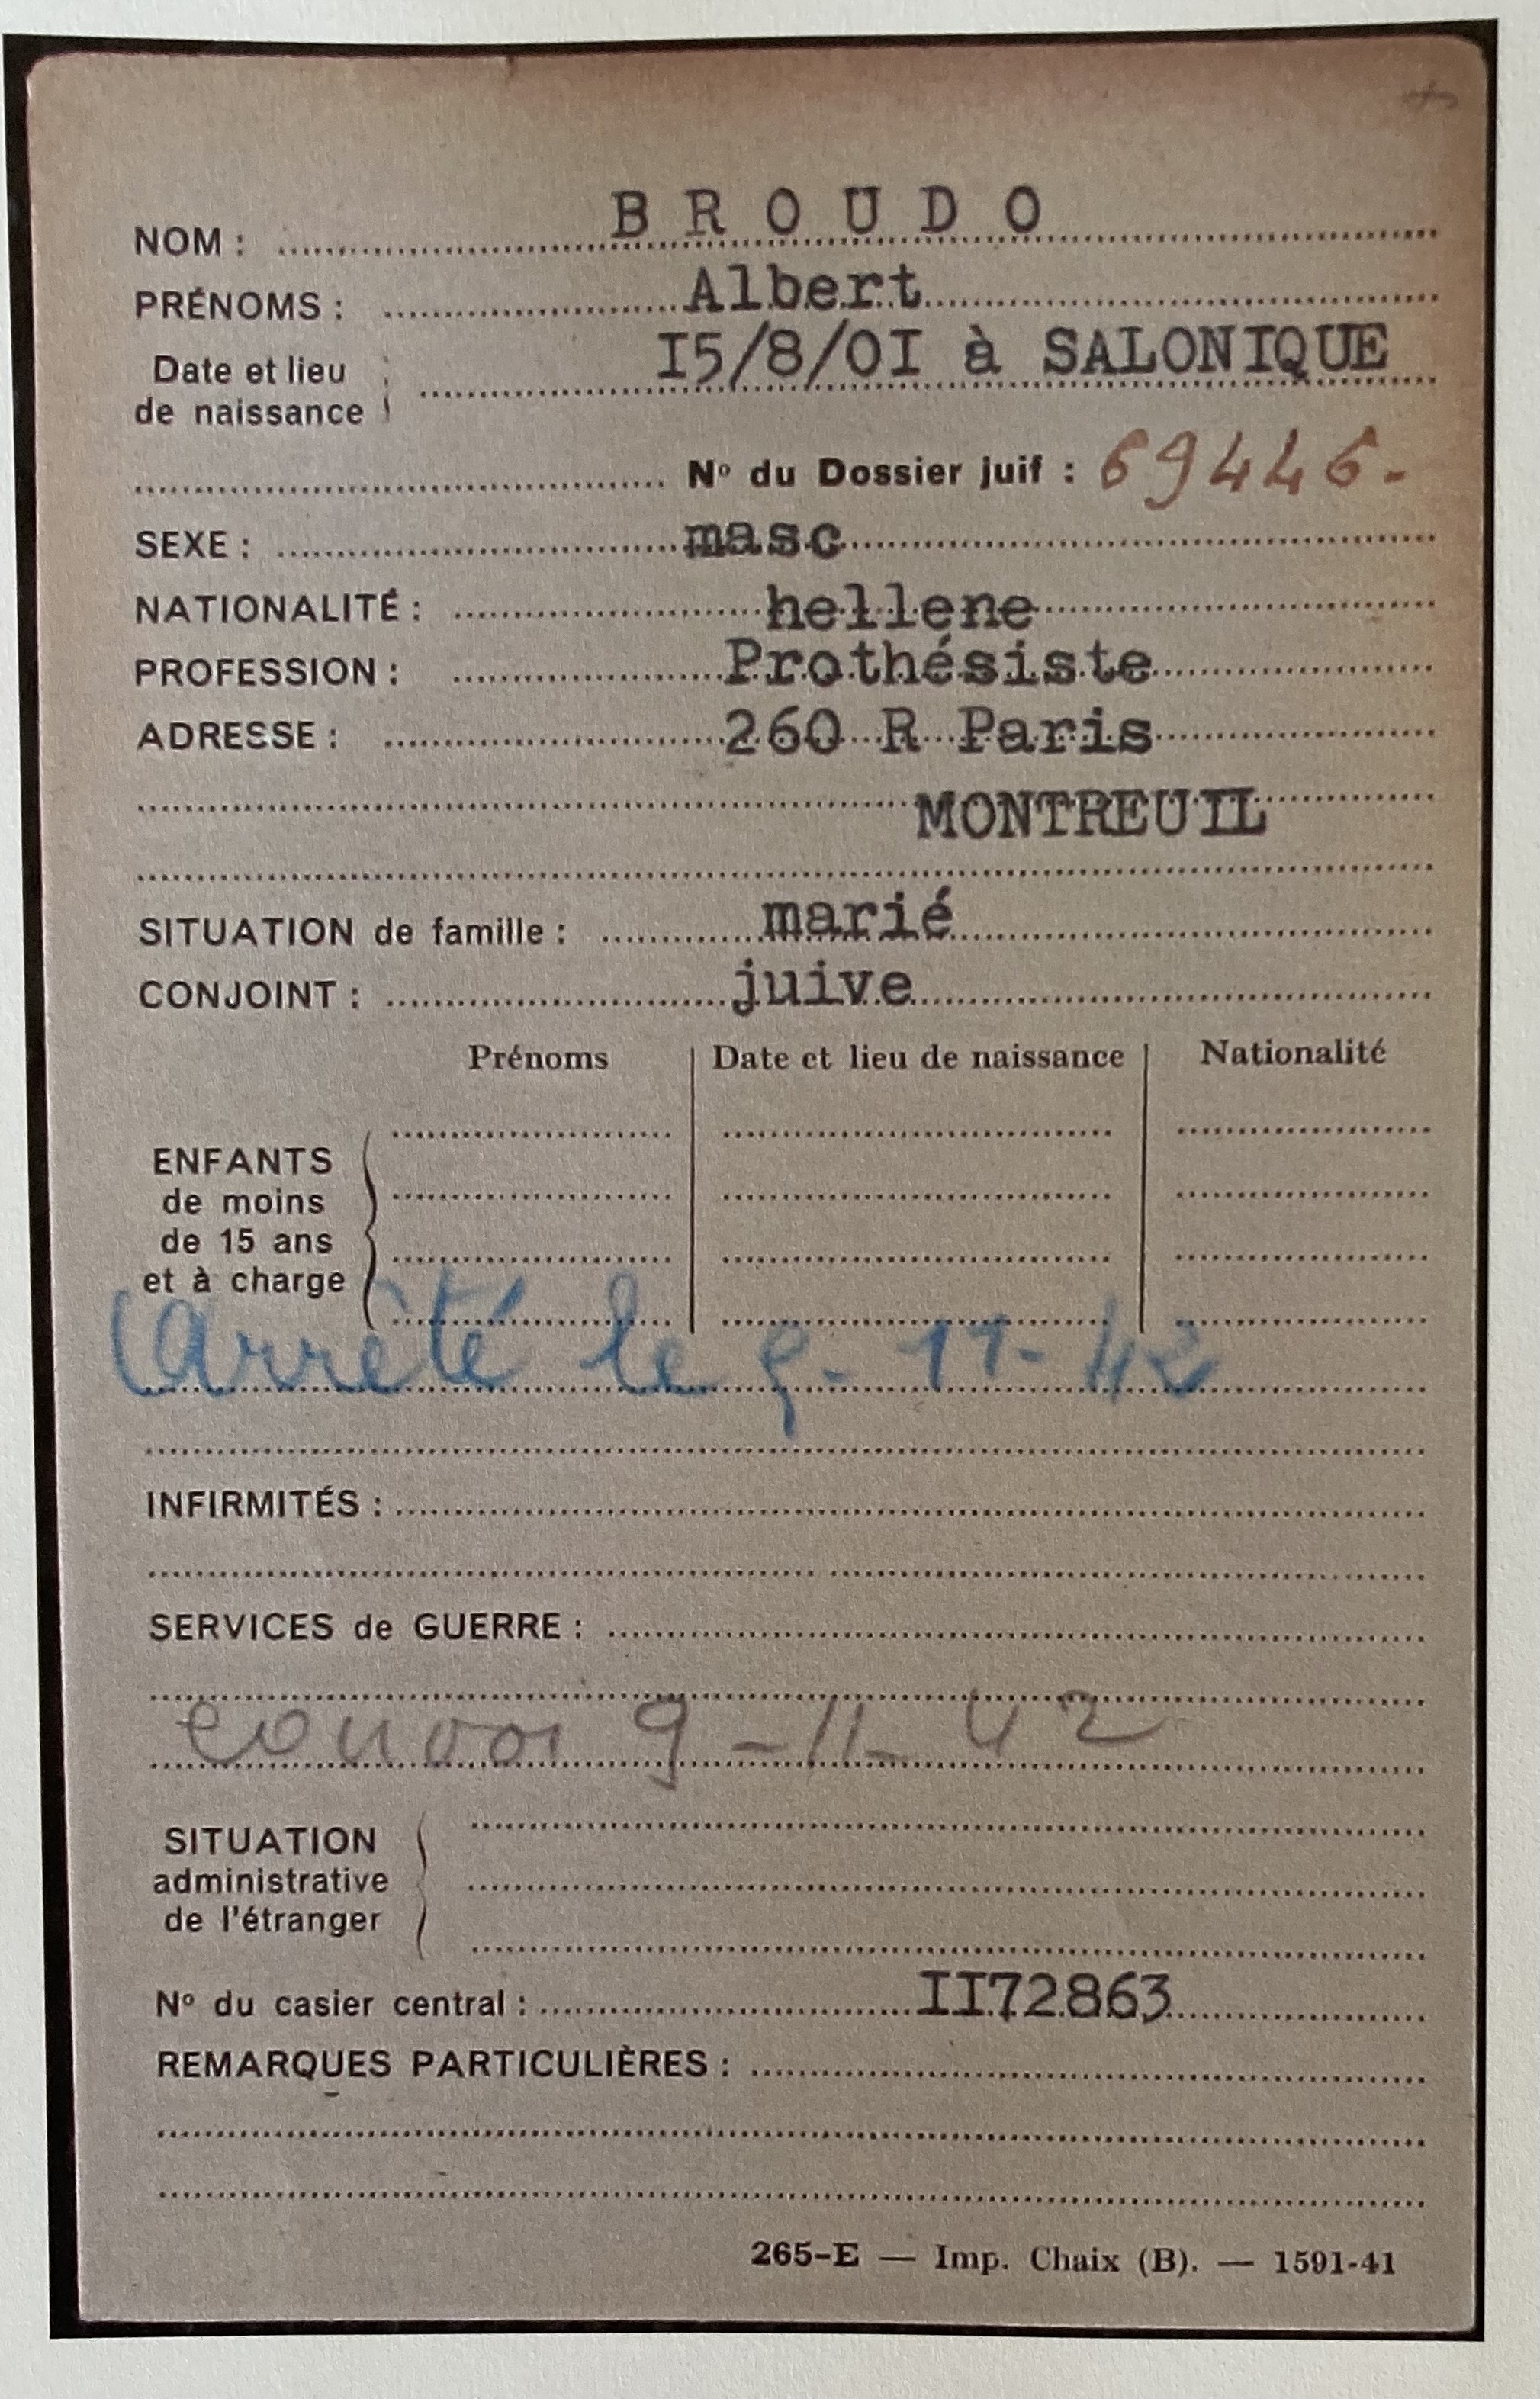 NOM : BROUDO
PRÉNOMS : Albert
Date et lieu de naissance I5/8/0I à SALONIQUE
Nº du Dossier juif : 69446.
SEXE : masc
NATIONALITÉ : hellene
PROFESSION : Prothésiste
ADRESSE : 260 R Paris
MONTREUIL
SITUATION de famille : marié
CONJOINT : juive
Prénoms Date et lieu de naissance Nationalité
ENFANTS
de moins
de 15 ans
et à charge
Arrêté le 5-11-42
INFIRMITÉS :
SERVICES de GUERRE :
convoi 9-11-42
SITUATION
administrative
de l'étranger
Nº du casier central : II72863
REMARQUES PARTICULIÈRES :
265-E — Imp. Chaix (B). — 1591-41